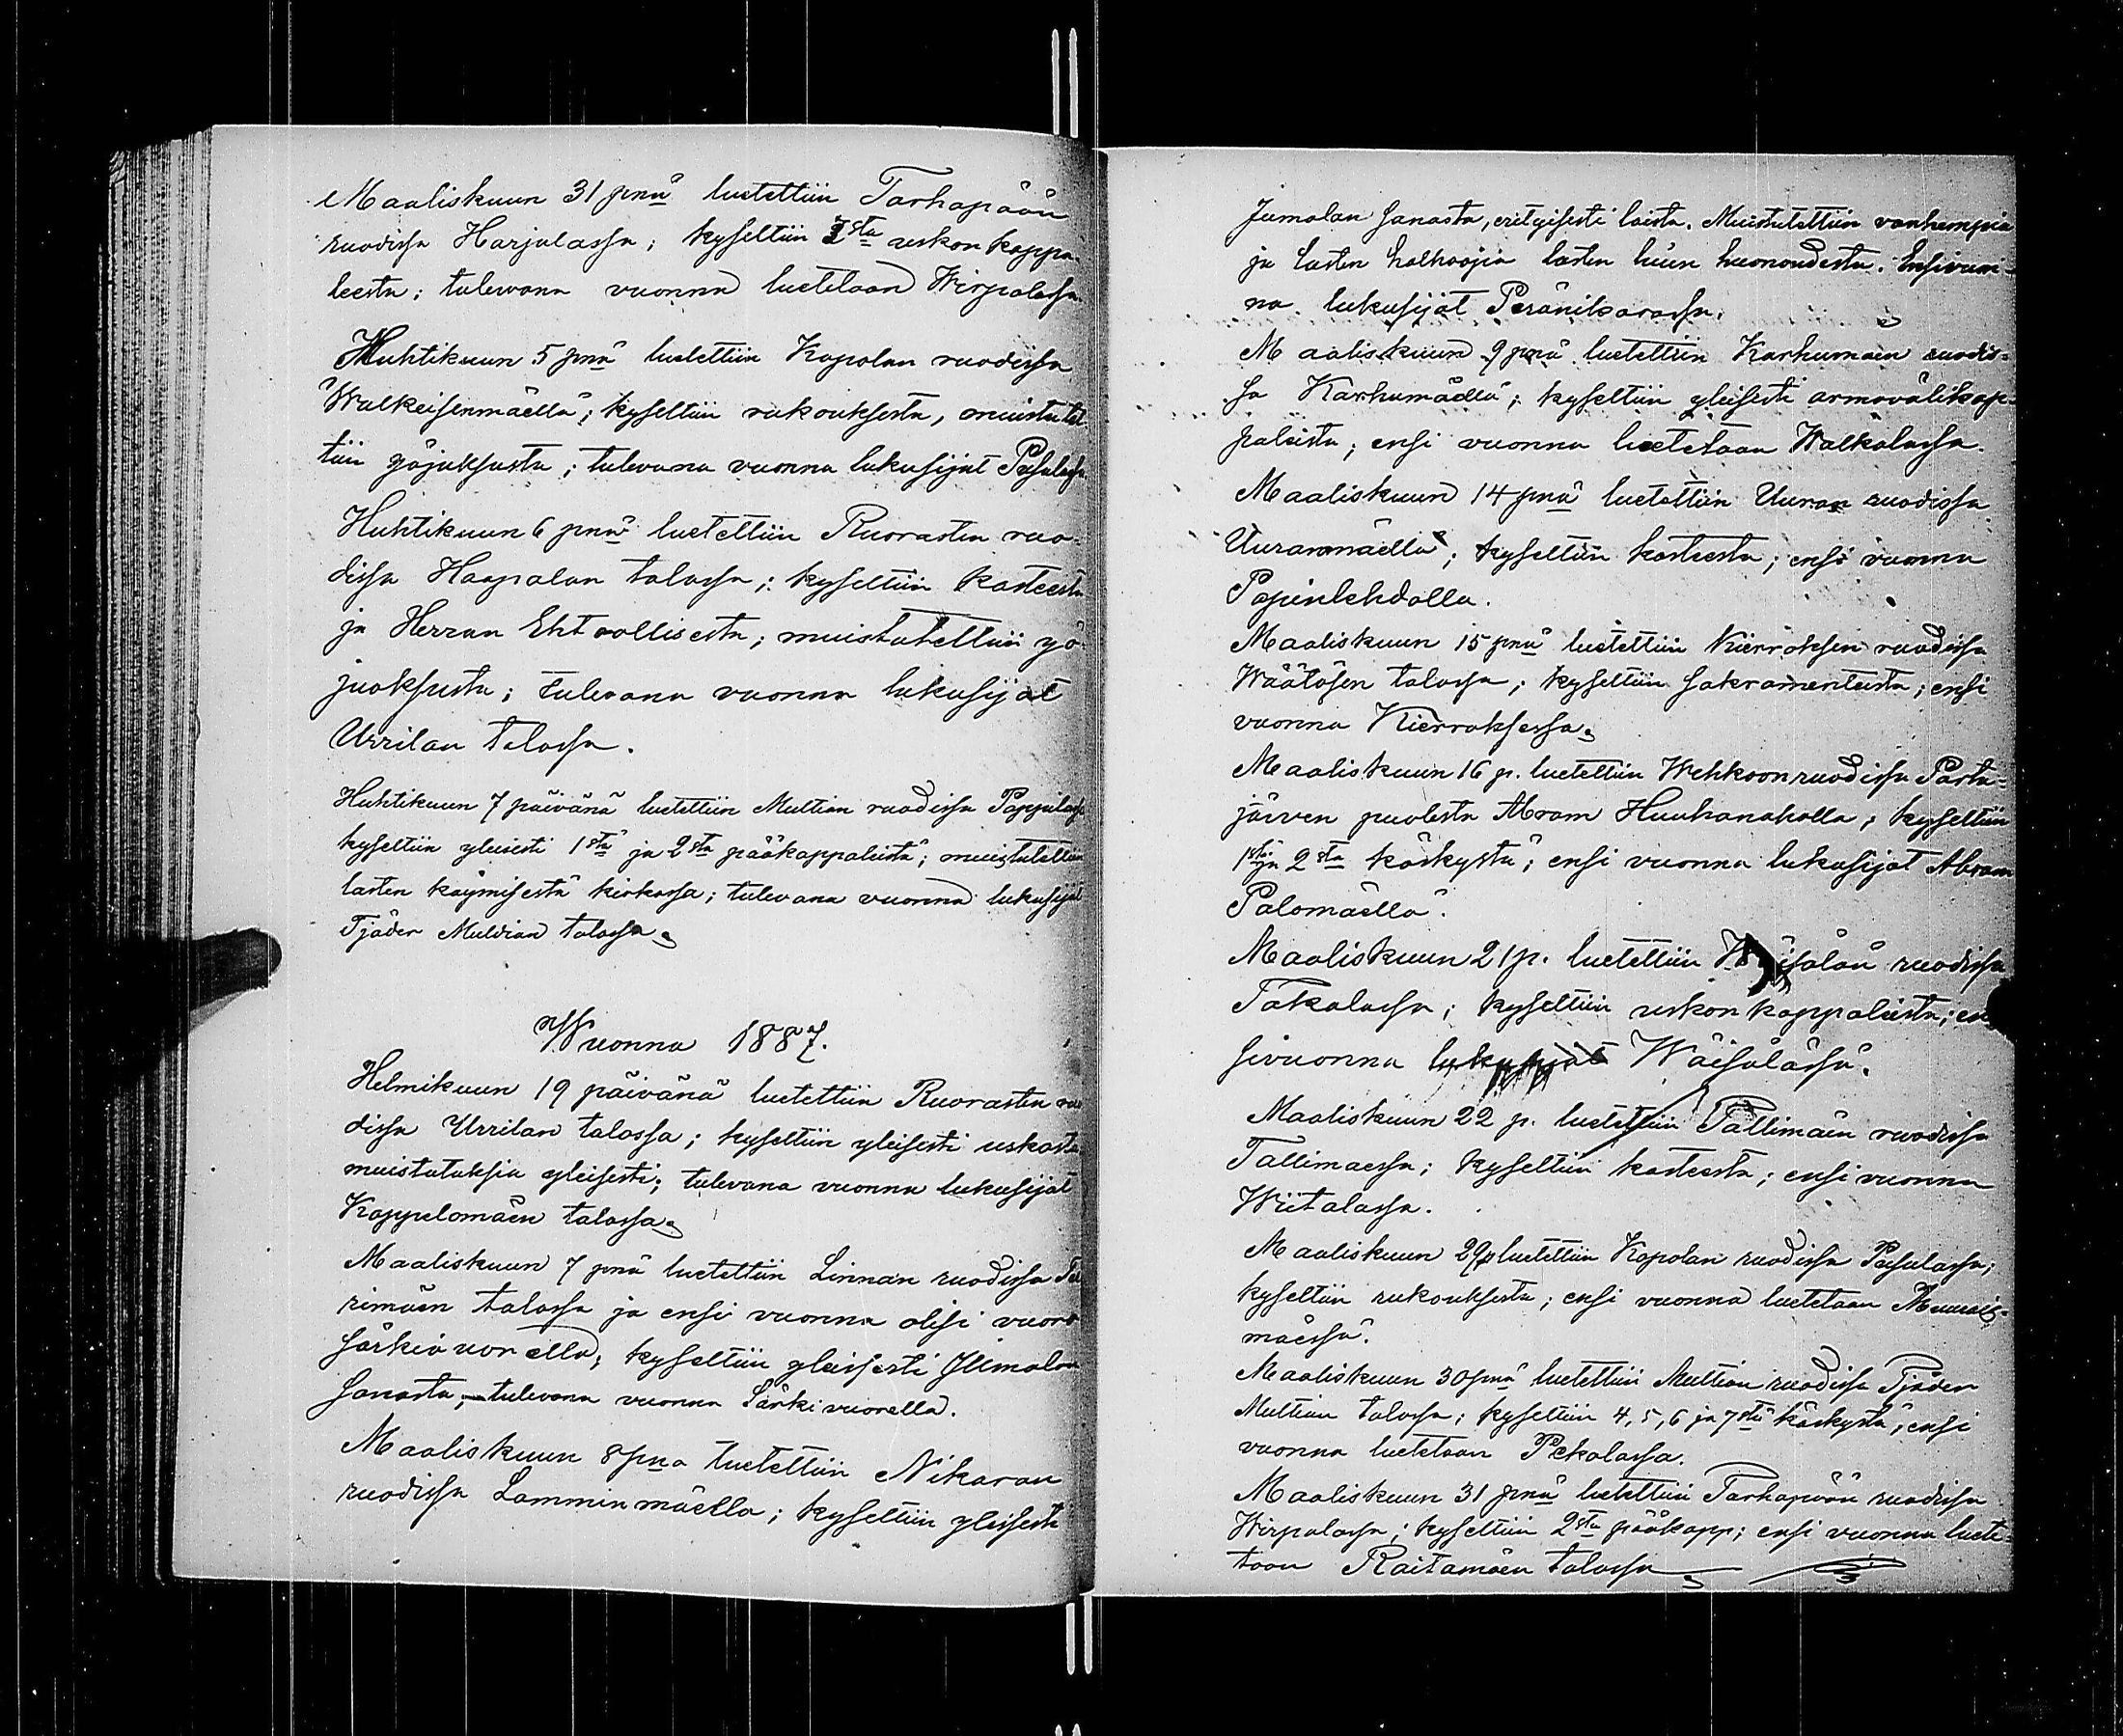 Maaliskuun 31 pnä luetettiin Tarhapään
ruodissa Harjulassa; kyseltiin 3sta uskon kappa-
leesta; tulevana vuonna luetetaan Wirpalassa.
Huhtikuun 5 pnä luetettiin Kopolan ruodissa
Walkeisenmäellä; kyseltiin rukouksesta, muistutet-
tiin yöjuoksusta; tulevana vuonna lukusijat Pasulassa
Huhtikuun 6 pnä luetettiin Ruorasten ruo-
dissa Haapalan talossa; kyseltiin kasteesta
ja Herran Ehtoollisesta; muistutettiin yö-
juoksusta; tulevana vuonna lukusijat
Urrilan talossa.
Huhtikuun 7 päivänä luetettiin Multian ruodissa Pappilassa
kyseltiin yleisesti 1stä ja 2sta pääkappaleista; muistutettiin
lasten käymisestä kirkossa; tulevana vuonna lukusijat
Tjäder Muldian talossa.
Wuonna 1887.
Helmikuun 19 päivänä luetettiin Ruorasten ruo
dissa Urrilan talossa; kyseltiin yleisesti uskosta
muistutuksia yleisesti; tulevana vuonna lukusijat
Koppelomäen talossa.
Maaliskuun 7 pnä luetettiin Linnan ruodissa
rimäen talossa ja ensi vuonna olisi vuoro
Särkivuorella; kyseltiin yleisesti Jumalan
Sanasta; tulevana vuonna Särkivuorella.
Maaliskuun 8 pna luetettiin Nikaran
ruodissa Lamminmäellä; kyseltiin yleisesti
Jumalan Sanasta, erityisesti laista. Muistutettiin vanhempia
ja lasten holhoojia lasten luun huonoudesta. Ensivuon-
na lukusijat Peränikarassa.
Maaliskuun 9 pnä luetettiin Karhumäen ruodis-
sa Karhumäellä; kyseltiin yleisesti armovälikap-
paleista; ensi vuonna luetetaan Walkolassa.
Maaliskuun 14 pnä luetettiin Uuran ruodissa
Uuranmäellä; kyseltiin kasteesta; ensi vuonna
Papinlehdolla.
Maaliskuun 15 pnä luetettiin Kierroksen ruodissa
Wäätäsen talossa; kyseltiin Sakramenteista; ensi
vuonna Kierroksessa.
Maaliskuun 16 p. luetettiin Wehkoon ruodissa Pasta-
järven puolesta Abram Huuhanaholla; kyseltiin
1stä ja 2sta käskystä; ensi vuonna lukusijat Abram
Palomäellä.
Maaliskuun 21 p. luetettiin Wäisälän ruodissa
Takalassa; kyseltiin uskon kappaleista; en
sivuonna lukusijat Wäisälässä.
Maaliskuun 22 p. luetettiin Tallimäen ruodissa
Tallimäessa; kyseltiin kasteesta; ensi vuonna
Wiitalassa.
Maaliskuun 29 p luetettiin Kopolan ruodissa Pasulassa;
kyseltiin rukouksesta; ensi vuonna luetetaan
mäessä.
Maaliskuun 30 pnä luetettiin Multian ruodissa Tjäder
Multian talossa; kyseltiin 4, 5, 6 ja 7stä käskystä; ensi
vuonna luetetaan Pekolassa.
Maaliskuun 31 pnä luetettiin Tarhapään ruodissa
Wirpalassa; kyseltiin 2sta pääkapp; ensi vuonna luete-
taan Raitamäen talossa